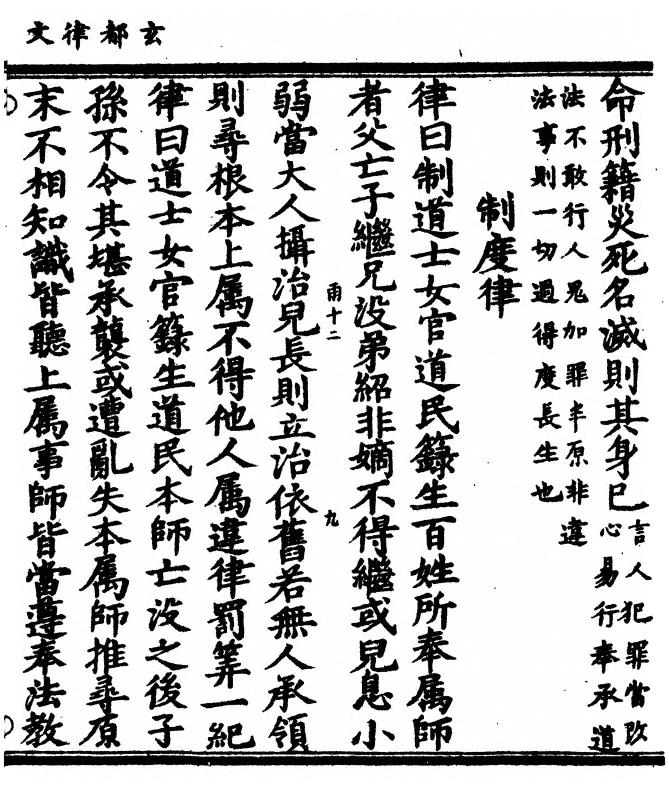 玄都律文
命刑籍災死名滅則其身已言人犯罪當改
心易行奉承道
法不敢行人鬼加罪半原非違
法事則一切過得度長生也
制度律
律曰制道士女官道民籙生百姓所奉属師
者父亡子繼兄没弟紹非嫡不得繼或兒息小
雨十二
九
弱當大人攝治兒長則立治依舊若無人承領
則尋根本上属不得他人属違律罰筭一紀
律曰道士女官籙生道民本師亡没之後子
孫不令其堪承襲或遭亂失本属師推尋原
末不相知識皆聽上属事師皆當遵奉法教